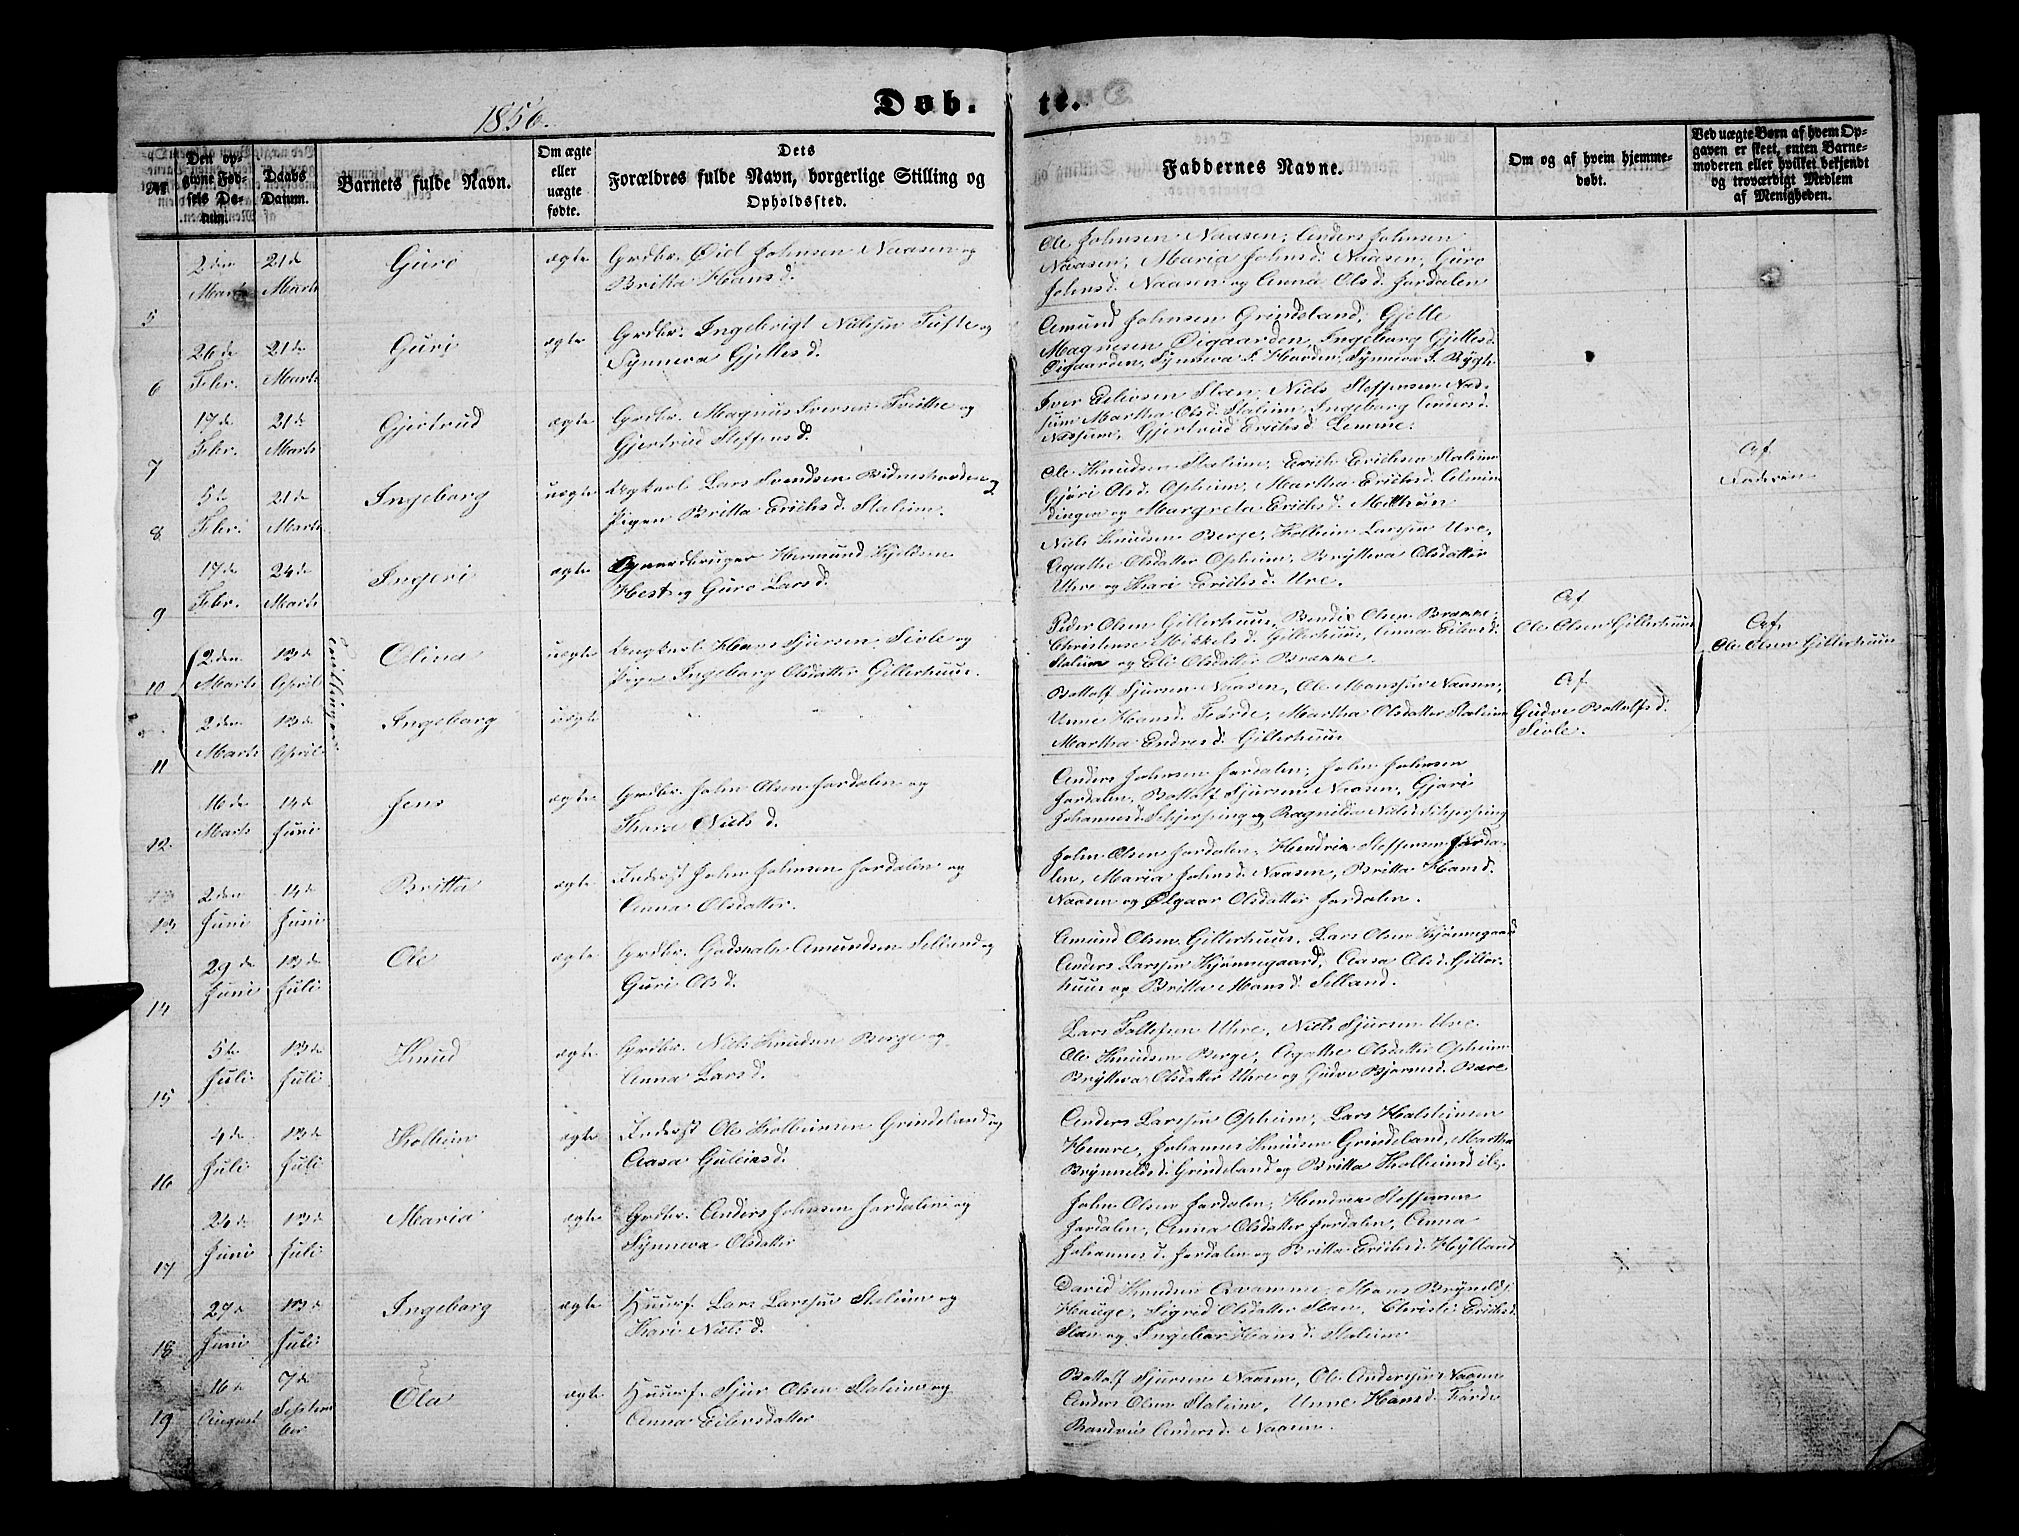 1856.
Døb. te.
No
Den op-
givne Fød-
sels Da-
tum.
Daabs
Datum.
Barnets fulde Navn.
Om ægte
eller
uægte
fødte.
Dets
Forældres fulde Navn, borgerlige Stilling og
Opholdssted.
Faddernes Navne.
Om og af hvem hjemme-
døbt.
Ved uægte Børn af hvem Op-
gaven er skeet, enten Barne-
moderen eller hvilket bekjendt
og troværdigt Medlem
af Menigheden.
5
2den
Marts
21de
Marts
Guro
ægte
Grdbr. Johnsen Naasen og
Britta Hansd.
Ole Johnsen Naasen, Anders Johnsen
Naasen, Maria Johnsd. Naasen, Guro
Johnsd. Naasen og Anna Olsd. Jordalen
6
26de
Febr.
21de
Marts
Guri
ægte
Grdbr. Ingebrigt Nilssen Tufte og
Synneva Gjellesd.
Amund Johnsen Grindeland, Gjelle
Magnesen Øigaarden, Ingeborg Gjellesd.
Øigaarden, Synneva
7
17de
Febr.
21de
Marts
Gjertrud
ægte
Grdbr. Magnus Iversen Tvithe og
Gjertrud Steffensd.
Iver Slæn, Niels Steffensen
Martha Olsd. Stalium, Ingeborg Andersd.
Gjertrud Erichsd. Lemme.
8
5te
Febr.
21de
Marts
Ingeborg
uægte
Ungkarl Lars Svendsen
Pigen Britta Erichsd. Stalium.
Ole Knudsen Stalium, Erich Erichsen Stalium
Gjøri Olsd. Opheim, Martha Erichsd.
dingen og Margreta Erichsd.
Af
Faderen
9
17de
Febr.
24de
Marts
Ingeri
ægte
Gaardbruger Hermund Kjeldsen
Hest og Guro Larsd.
Niels Knudsen Berge, Kolbein Larssen Ure,
Agathe Olsdatter Opheim, Brytteva Olsdatter
Uhre og Kari Erichsd. Ure.
10
2den
Marts
13de
April
Tvillinger
Olina
uægte
Ungkarl Hans Sjursen Sivle og
Pigen Ingeborg Olsdatter Gillerhuus.
Peder Olsen Gillerhuus, Bendix Olsen Bramme,
Christense Mikkelsd. Gillerhuus, Anna Eilersd.
Stalium og Eli Olsdatter Bramme.
Af
Ole Olsen Gillerhuus
Af
Ole Olsen Gillerhuus
11
2den
Marts
13de
April
Ingeborg
uægte
Bottolf Sjursen Naasen, Ole Monssen Naasen,
Unne Hansd. Førde, Martha Olsdatter Stalium
Martha Endresd. Gillerhuus
Af
Gudve Bottolfsd.
Sivle.
12
16de
Marts
14de
Juni
Jens
ægte
Grdbr. John Olsen Jordalen og
Nielsd.
Anders Johnsen Jordalen, John Johnsen
Jordalen, Bottolf Sjursen Naasen, Gjøri
Johannesd. Skjerping og Ragnilda Nielsd. Skjerping
13
13
2den
Juni
14de
Juni
Britta
ægte
Inderst John Johnsen Jordalen og
Anna Olsdatter.
John Olsen Jordalen, Hendrik Steffensen Jorda-
len, Maria Johnsd. Naasen, Britta Hansd.
Naasen og Ølgaar Olsdatter Jordalen.
14
29de
Juni
13de
Juli
Ole
ægte
Grdbr. Godskalk Amundsen Selland og
Guri Olsd.
Amund Olsen Gillerhuus, Lars Olsen Kjønnegaard
Anders Larssen Kjønnegaard, Aasa Olsd. Giller-
huus og Britta Monsd. Selland.
15
5te
Juli
13de
Juli
Knud
ægte
Grdbr. Niels Knudsen Berge og
Anna Larsd.
Lars Uhre, Niels Sjursen Ure
Ole Knudsen Berge, Agathe Olsdatter Opheim
Brytteva Olsdatter Uhre og Gudve Bjørnesd.
16
4de
Juli
13de
Juli
Kolbein
ægte
Inderst Ole Kolbeinsen Grindeland og
Aasa Guleiksd.
Anders Larssen Opheim, Lars Halsteinsen
Hemre, Johannes Knudsen Grindeland, Martha
Brynnildsd. Grindeland og Britta Kolbeinsd. ib.
17
24de
Juni
13de
Juli
Maria
ægte
Grdbr. Anders Johnsen Jordalen og
Synneva Olsdatter
John Olsen Jordalen, Hendrik Steffensen
Jordalen, Anna Olsdatter Jordalen, Anna
Johannesd. Jordalen og Britta Erichsd. Hylland
18
27de
Juni
13de
Juli
Ingeborg
ægte
Huusf. Lars Larssen Stalium og
Kari Nielsd.
David Knudsen Qvamme, Mons Bryneldsen
Hauge, Sigrid Olsdatter Slæn, Christi Erichsd.
Slæn og Ingebor Hansd. Stalium
19
16de
August
7de
Septem
ber
Ola
ægte
Huusf. Sjur Olsen Stalium og
Anna Eilersdatter
Bottolf Sjursen Naasen, Ole Anderssen Naasen
Anders Olsen Stalium, Unne Hansd. Førde
Andersd. Naasen.